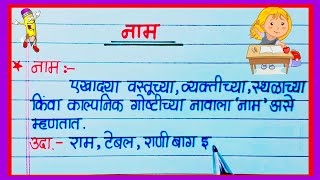 नाम
* नाम :-
एखाद्या वस्तूच्या, व्यक्तीच्या, स्थळाच्या
किंवा काल्पनिक गोष्टीच्या नावाला 'नाम' असे
म्हणतात.
उदा. - राम, टेबल, राणी बाग इ